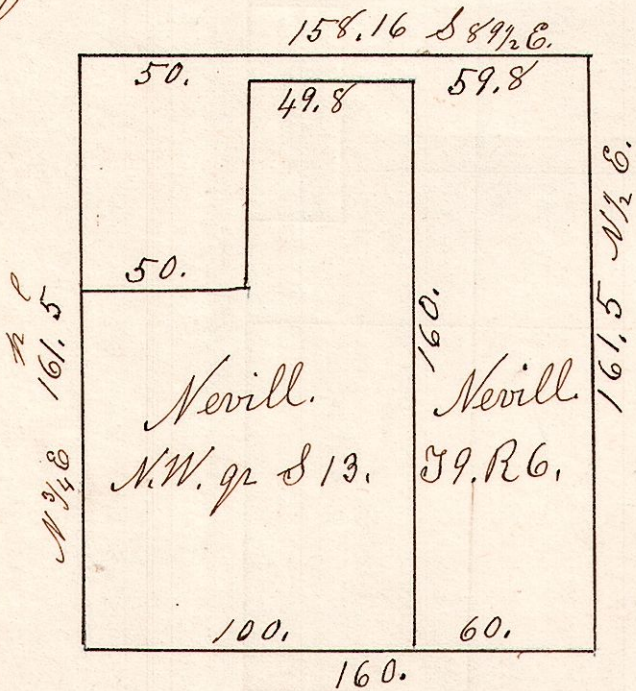 158.16 S 89½ E.
50.
49.8
59.8
50.
N ¾ E 161.5
160.
161.5 N ½ E.
Nevill.
N.W. qr S 13.
Nevill.
T9. R6.
100.
60.
160.